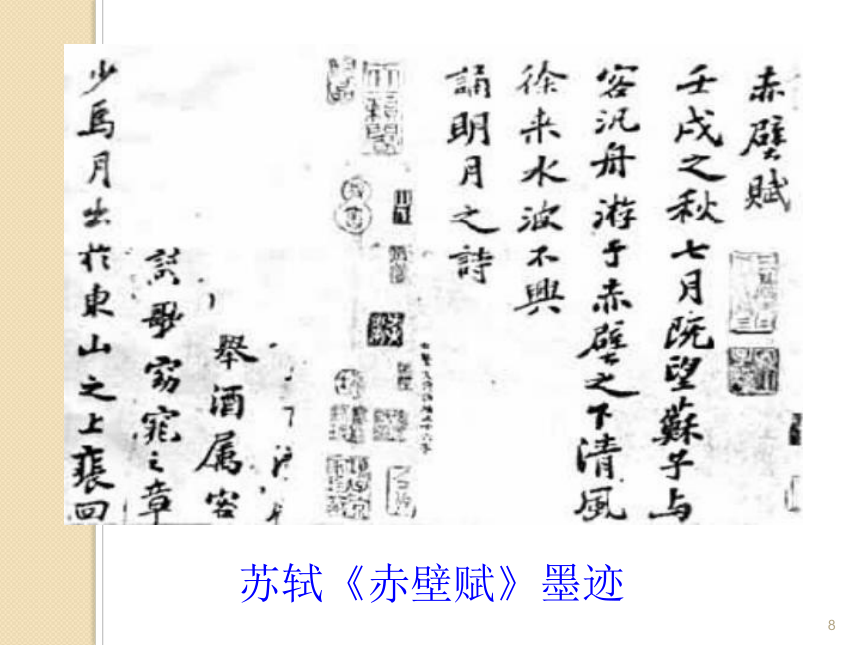 赤壁賦
壬戌之秋七月既望蘇子与
客汎舟游于赤壁之下清風
徐来水波不興
誦明月之詩
舉酒属客
歌窈窕之章
少焉月出於東山之上裴回
苏轼《赤壁赋》墨迹
8